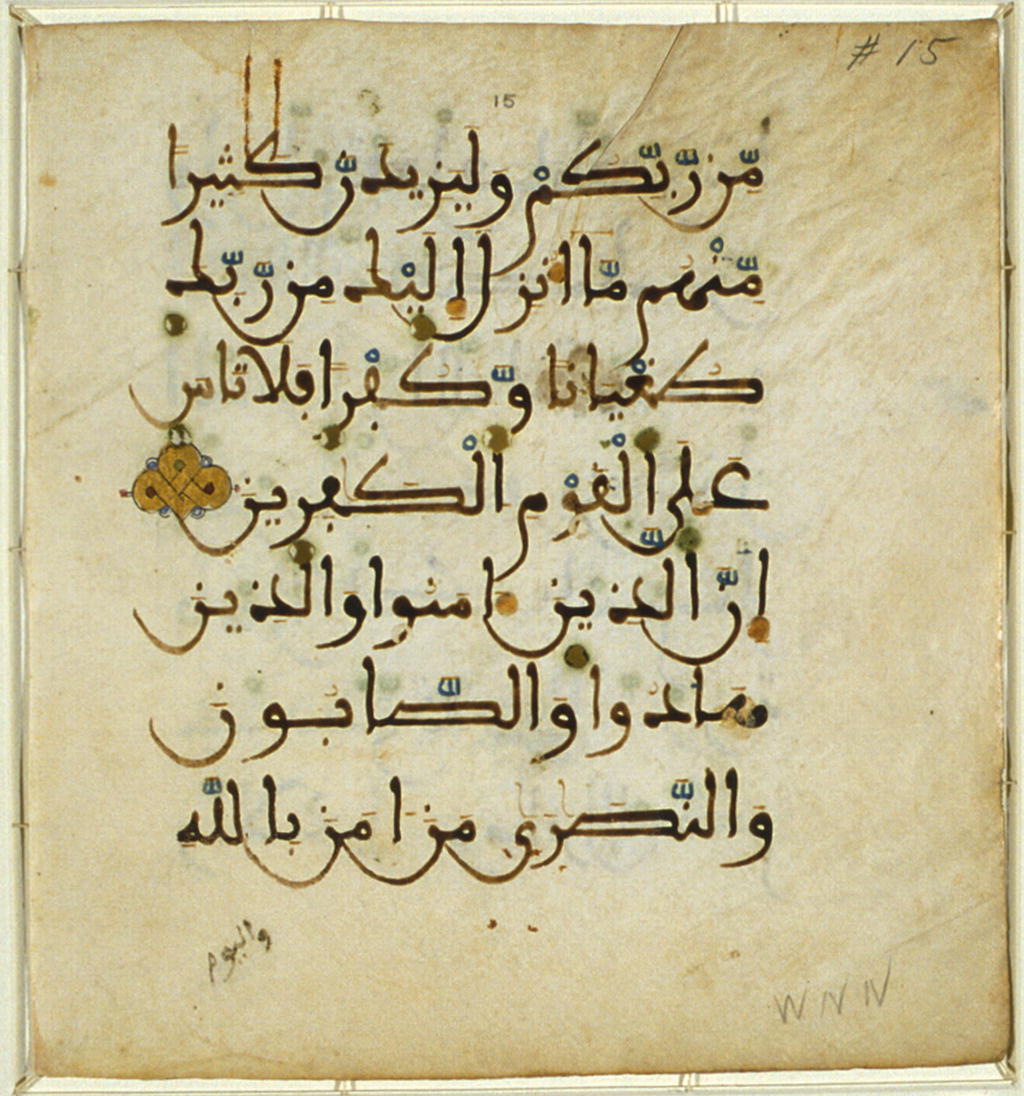 # 15
15
مِّن رَّبِّكُمْ وَلَيَزِيدَنَّ كَثِيرًا
مِّنْهُم مَّا أُنزِلَ إِلَيْكَ مِن رَّبِّكَ
طُغْيَانًا وَّكُفْرًا فَلَا تَاسَ
عَلَى الْقَوْمِ الْكَافِرِينَ
إِنَّ الَّذِينَ ءَامَنُوا وَالَّذِينَ
هَادُوا وَالصَّابُونَ
وَالنَّصَارَى مَنْ ءَامَنَ بِاللَّهِ
واليوم
W N IV